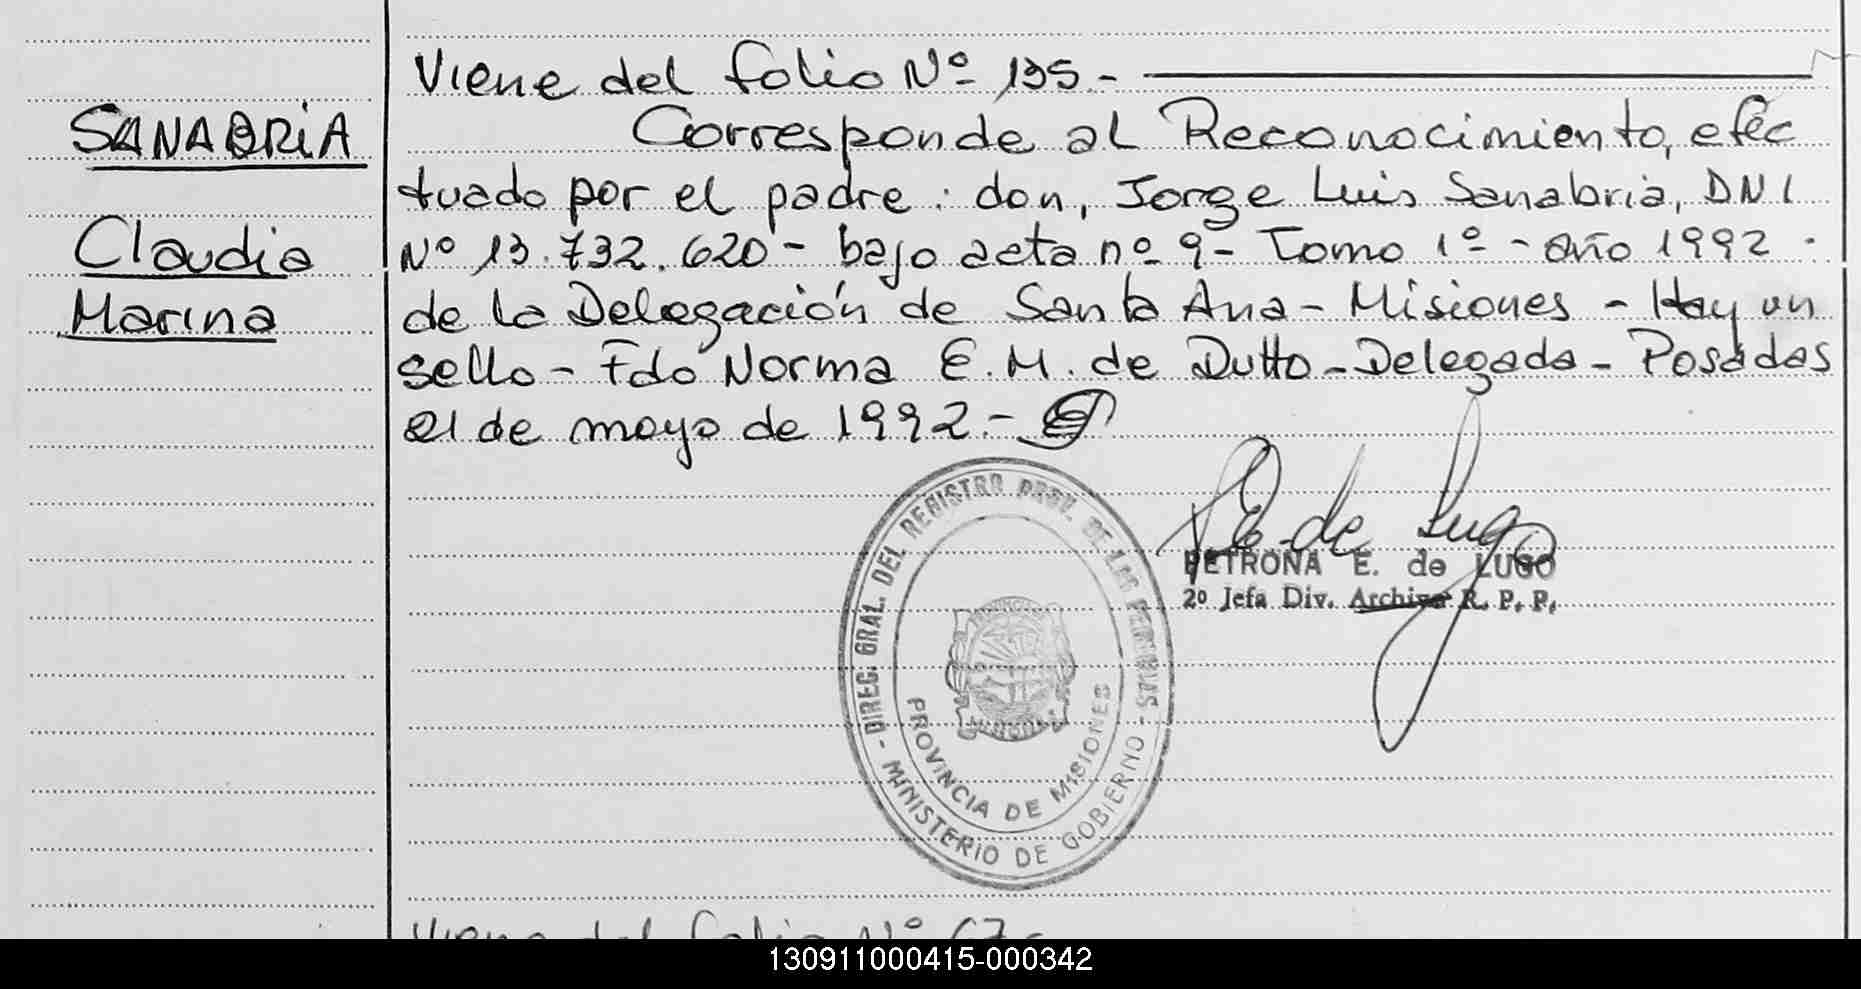 Viene del folio Nº 195.-
SANABRIA
Corresponde al Reconocimiento, efec
tuado por el padre: don, Jorge Luis Sanabria, DNI
Claudia
Nº 13.732.620 - bajo acta nº 9 - Tomo 1º - año 1992 -
Marina
de la Delegación de Santa Ana - Misiones - Hay un
sello - Fdo Norma E. M. de Dutto - Delegada - Posadas
21 de mayo de 1992.-
- DIREC. GRAL. DEL REGISTRO PROV. DE LAS PERSONAS -
MINISTERIO DE GOBIERNO
PROVINCIA DE MISIONES
E. de Lugo
PETRONA E. de LUGO
2º Jefa Div. Archivo R. P. P.
Viene del folio Nº 67-
130911000415-000342